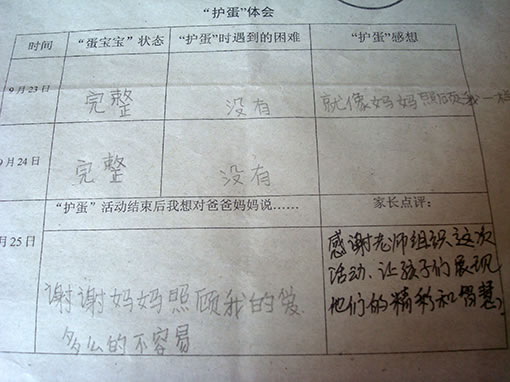 “护蛋”体会
时间 “蛋宝宝”状态 “护蛋”时遇到的困难 “护蛋”感想
9月23日 完整 没有 就像妈妈照顾我一样
9月24日 完整 没有
“护蛋”活动结束后我想对爸爸妈妈说…… 家长点评:
月25日
谢谢妈妈照顾我的爱
多么的不容易
感谢老师组织这次
活动、让孩子们展现
他们的精彩和智慧